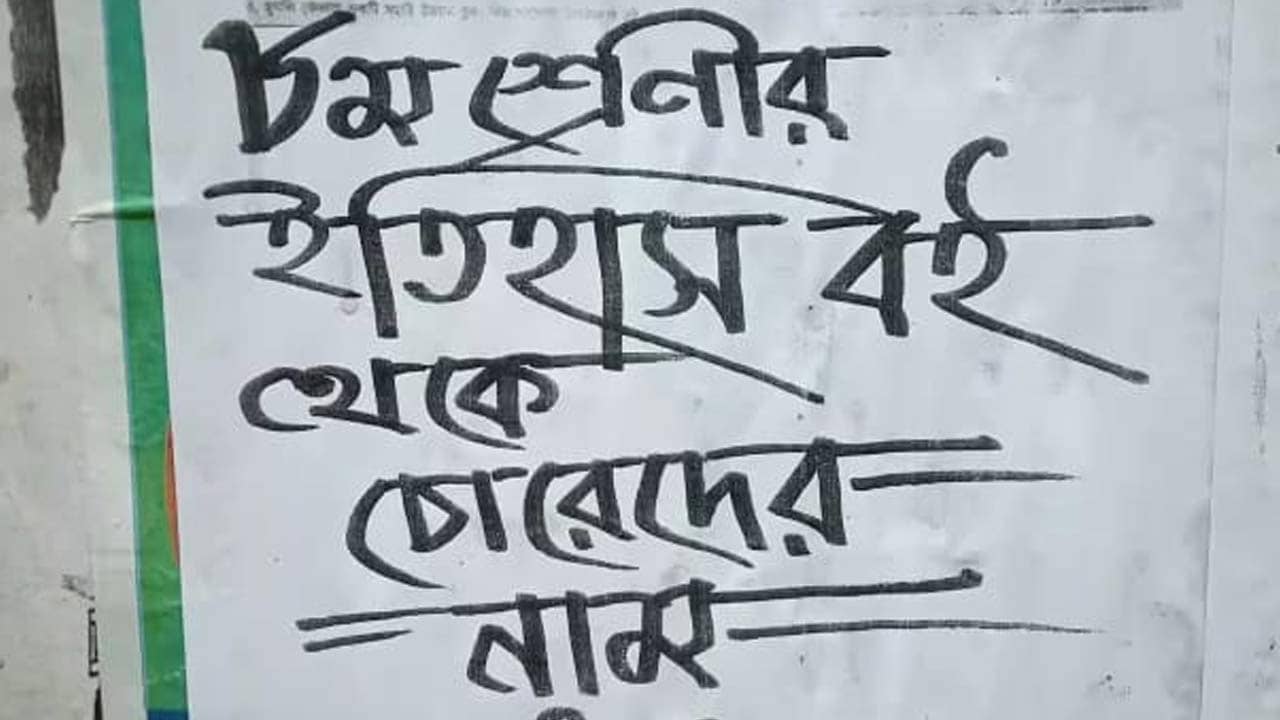 ৮ম শ্রেনীর
ইতিহাস বই
থেকে
চোরেদের
নাম